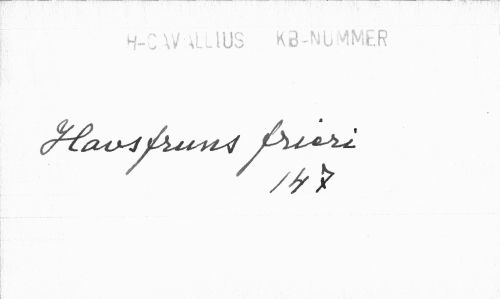 H-CAVALLIUS KB-NUMMER
Havsfruns frieri
147